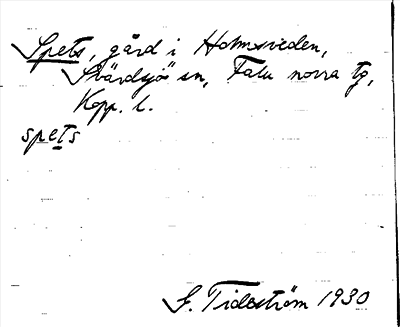 Spets, gård i Holmsveden,
Svärdsjö sn, Falu norra tg,
Kopp. l.
spets
G. Tideström 1930